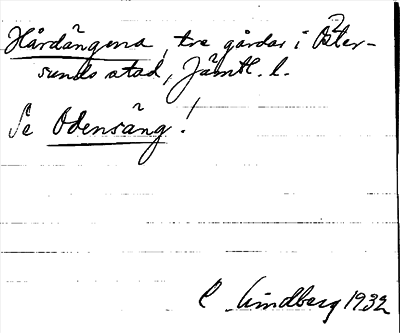 Hårdängena, tre gårdar i Öster-
sunds stad, Jämtl. l.
Se Odensäng!
C. Lindberg 1932